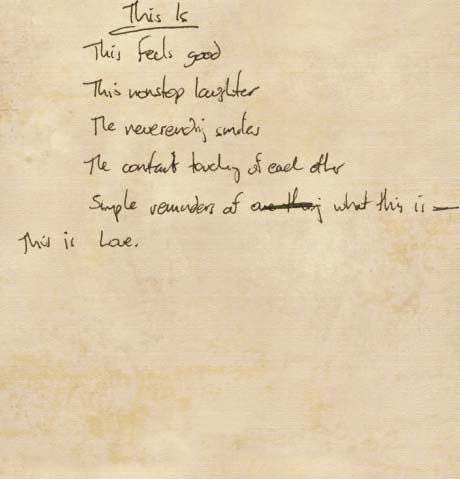 This Is
This feels good
This nonstop laughter
The neverending smiles
The contant touching of each other
Simple reminders of what this is —
This is Love.